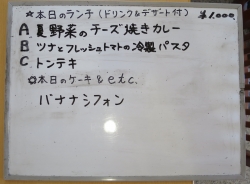 ☆本日のランチ(ドリンク&デザート付) ¥1,000
A 夏野菜のチーズ焼きカレー
B ツナとフレッシュトマトの冷製パスタ
C トンテキ
✿本日のケーキ & etc.
バナナシフォン